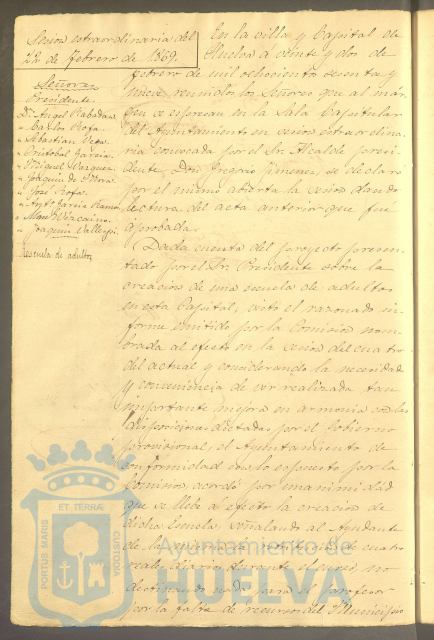 Sesion extraordinaria del
22 de Febrero de 1869.
Señores
Presidente
D. Angel Rabadan
" Carlos Rofa
" Sebastian Vega
" Cristobal Garcia
" Miguel Vazquez
" Joaquin de
" José Rofa
" Anto Garcia Ramos
" Manl Vizcaino
" Joaquin Vallespi
Escuela de adultos
En la villa y Capital de
Huelva á veinte y dos de
febrero de mil ochocientos sesenta y
nueve reunidos los Señores que al már-
gen se espresan en la Sala Capitular
del Ayuntamiento en sesion estraordina-
ria convocada por el Sr. Alcalde presi-
dente, Don Gregorio Jimenez, se declaró
por el mismo abierta la sesion dando
lectura del acta anterior que fué
aprobada.
Dada cuenta del proyecto presen-
tado por el Sr. Presidente sobre la
creacion de una escuela de adultos
en esta Capital, visto el razonado in-
forme emitido por la Comision nom-
brada al efecto en la sesion del cuatro
del actual y considerando la necesidad
y conveniencia de ver realizada tan
importante mejora en armonia con las
disposiciones dictadas por el Gobierno
provisional, el Ayuntamiento de
conformidad con lo espuesto por la
Comision acordó por unanimidad
que se lleve á efecto la creacion de
dicha Escuela, señalando al Ayudante
de la misma de cuatro
reales diarios durante el curso no
destinando nada para el profesor
por la falta de recursos del Municipio
PORTUS MARIS
ET TERRÆ
CUSTODIA
Ayuntamiento de
HUELVA